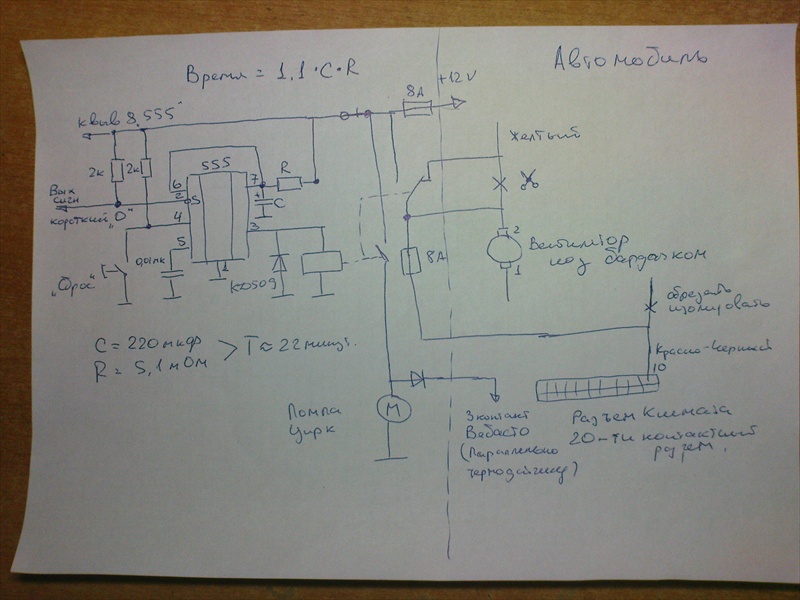 Время = 1,1·C·R
Автомобиль
+12V
8А
К выв 8 „555"
2к
2к
555
6
2
S
4
5
7
3
1
R
+
C
Вых
сигн
короткий „0"
„Сброс"
0,01мк
КД509
C = 220 мкф
R = 5,1 мОм
> T ≈ 22 минут.
Желтый
8А
2
1
Вентилятор
под бардачком
обрезать
изолировать
Красно-черный
10
М
Помпа
Цирк
3 контакт
Вебасто
(Параллельно
термодатчику)
Разъем Климата
20-ти контактный
разъем.